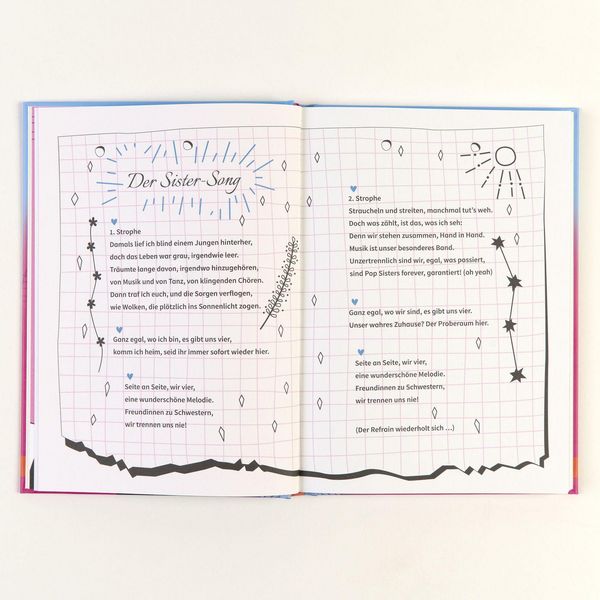 Der Sister-Song
1. Strophe
Damals lief ich blind einem Jungen hinterher,
doch das Leben war grau, irgendwie leer.
Träumte lange davon, irgendwo hinzugehören,
von Musik und von Tanz, von klingenden Chören.
Dann traf ich euch, und die Sorgen verflogen,
wie Wolken, die plötzlich ins Sonnenlicht zogen.
Ganz egal, wo ich bin, es gibt uns vier,
komm ich heim, seid ihr immer sofort wieder hier.
Seite an Seite, wir vier,
eine wunderschöne Melodie.
Freundinnen zu Schwestern,
wir trennen uns nie!
2. Strophe
Straucheln und streiten, manchmal tut's weh.
Doch was zählt, ist das, was ich seh:
Denn wir stehen zusammen, Hand in Hand.
Musik ist unser besonderes Band.
Unzertrennlich sind wir, egal, was passiert,
sind Pop Sisters forever, garantiert! (oh yeah)
Ganz egal, wo wir sind, es gibt uns vier.
Unser wahres Zuhause? Der Proberaum hier.
Seite an Seite, wir vier,
eine wunderschöne Melodie.
Freundinnen zu Schwestern,
wir trennen uns nie!
(Der Refrain wiederholt sich ...)